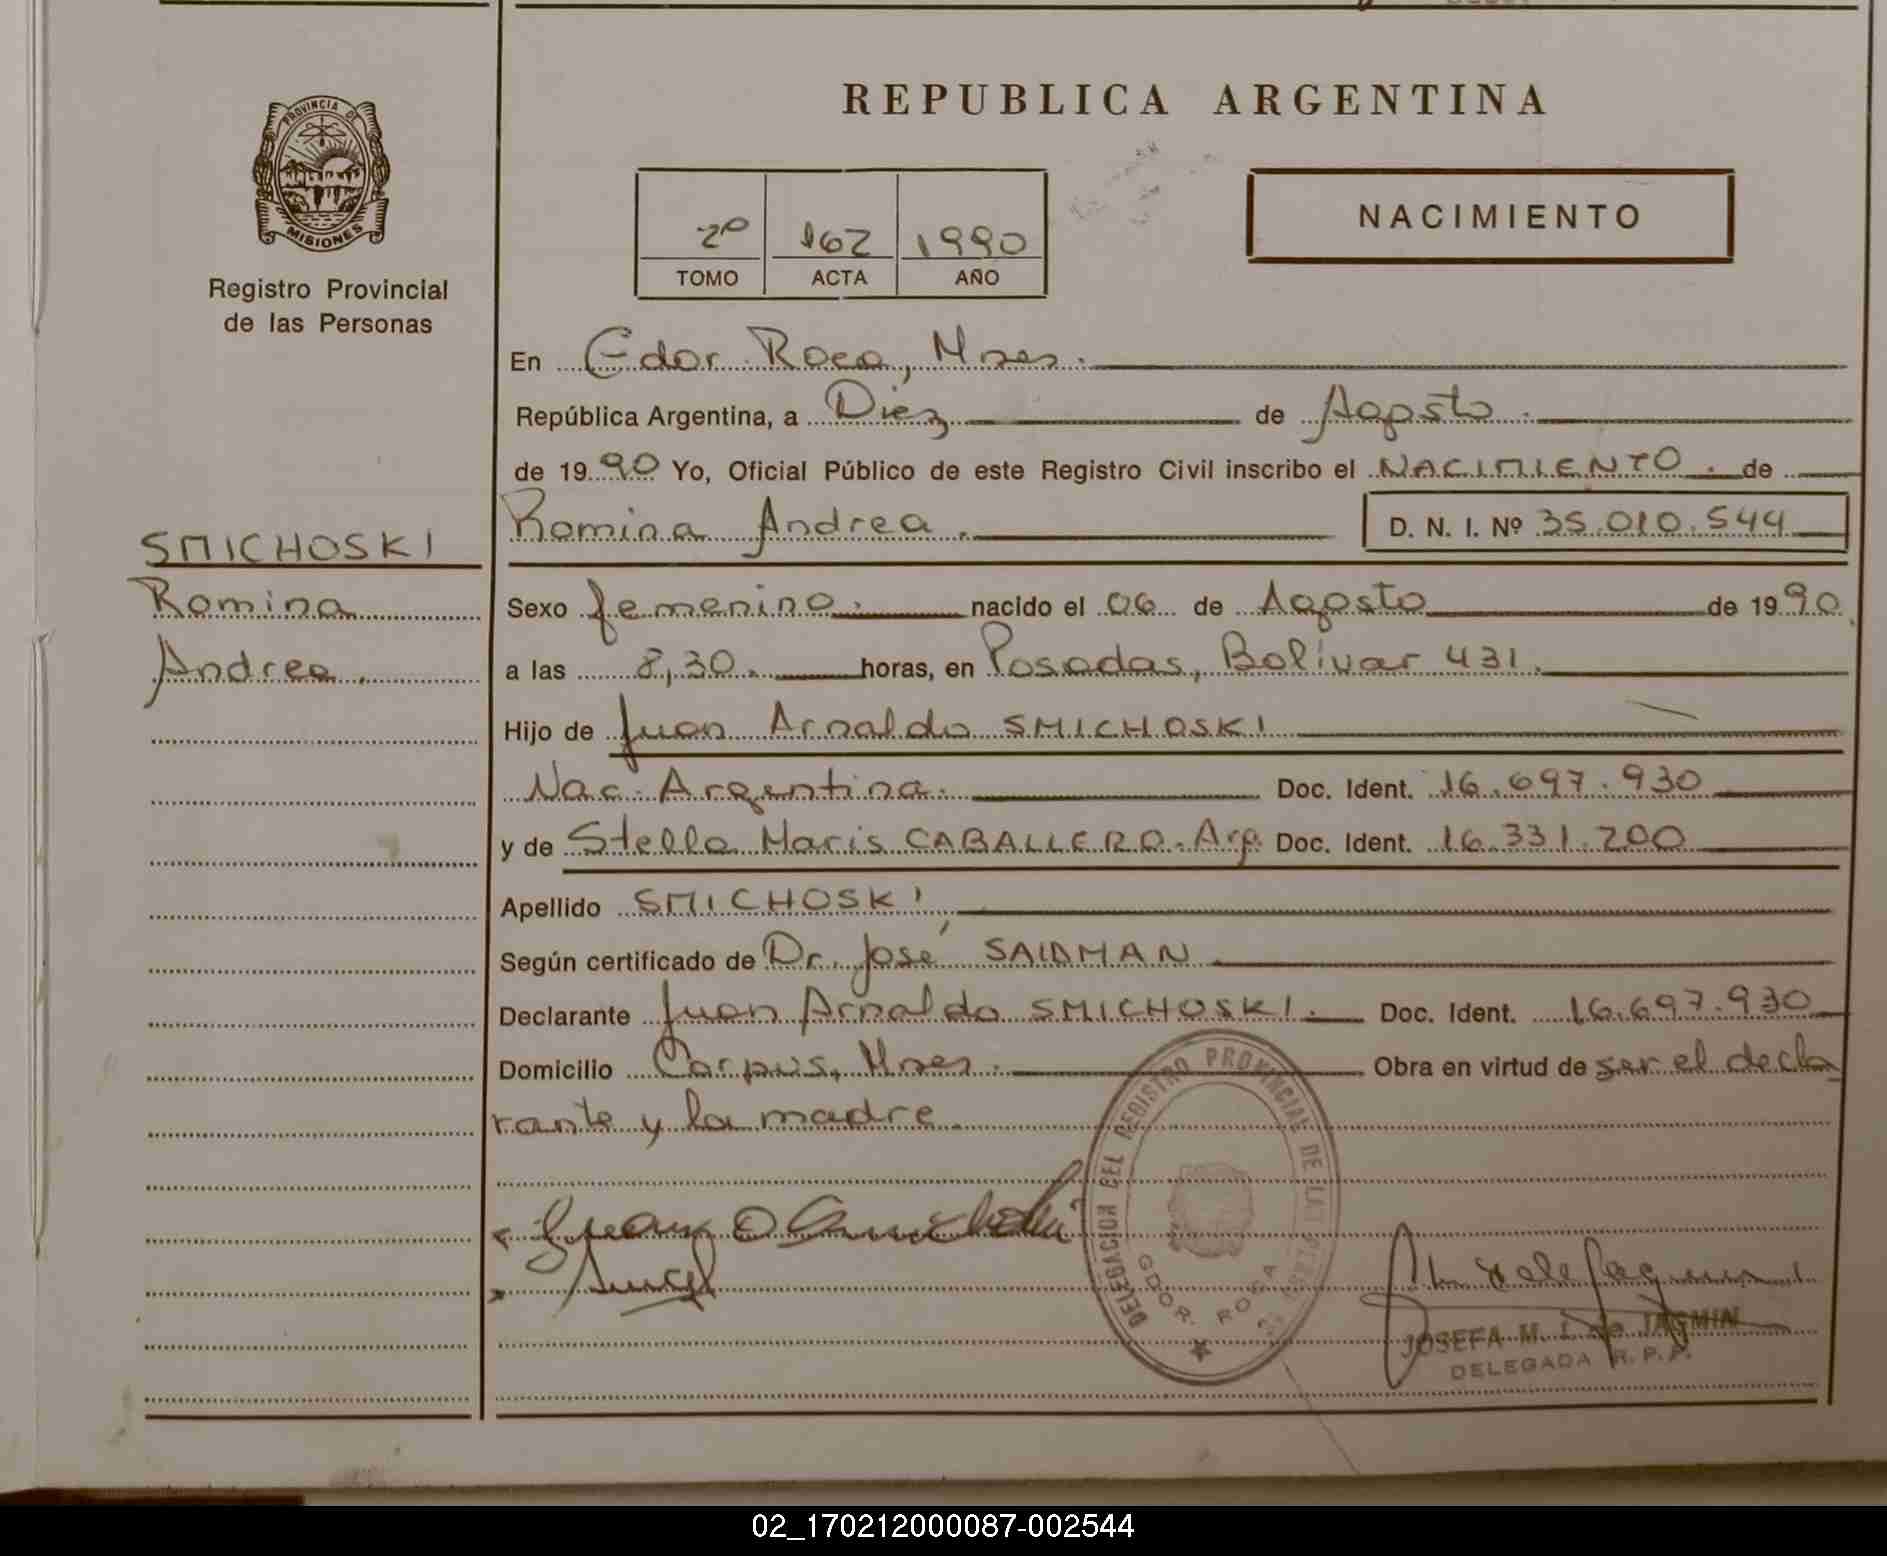 REPUBLICA ARGENTINA
PROVINCIA DE
MISIONES
Registro Provincial
de las Personas
2º 162 1990
TOMO ACTA AÑO
NACIMIENTO
En Gdor. Roca, Mnes.
República Argentina, a Diez de Agosto.
de 19 90 Yo, Oficial Público de este Registro Civil inscribo el NACIMIENTO. de
Romina Andrea. D. N. I. Nº 35.010.544
SMICHOSKI
Romina
Andrea.
Sexo femenino. nacido el 06 de Agosto de 19 90
a las 8,30. horas, en Posadas, Bolívar 431.
Hijo de Juan Arnaldo SMICHOSKI
Nac. Argentina. Doc. Ident. 16.697.930
y de Stella Maris CABALLERO. Arg. Doc. Ident. 16.331.200
Apellido SMICHOSKI
Según certificado de Dr. José SAIDMAN
Declarante Juan Arnaldo SMICHOSKI. Doc. Ident. 16.697.930
Domicilio Corpus, Mnes. Obra en virtud de ser el decla
rante y la madre.
DELEGACION DEL REGISTRO PROVINCIAL DE LAS PERS
GDOR. ROCA
JOSEFA M. L. de JASMIN
DELEGADA R. P. P.
02_170212000087-002544